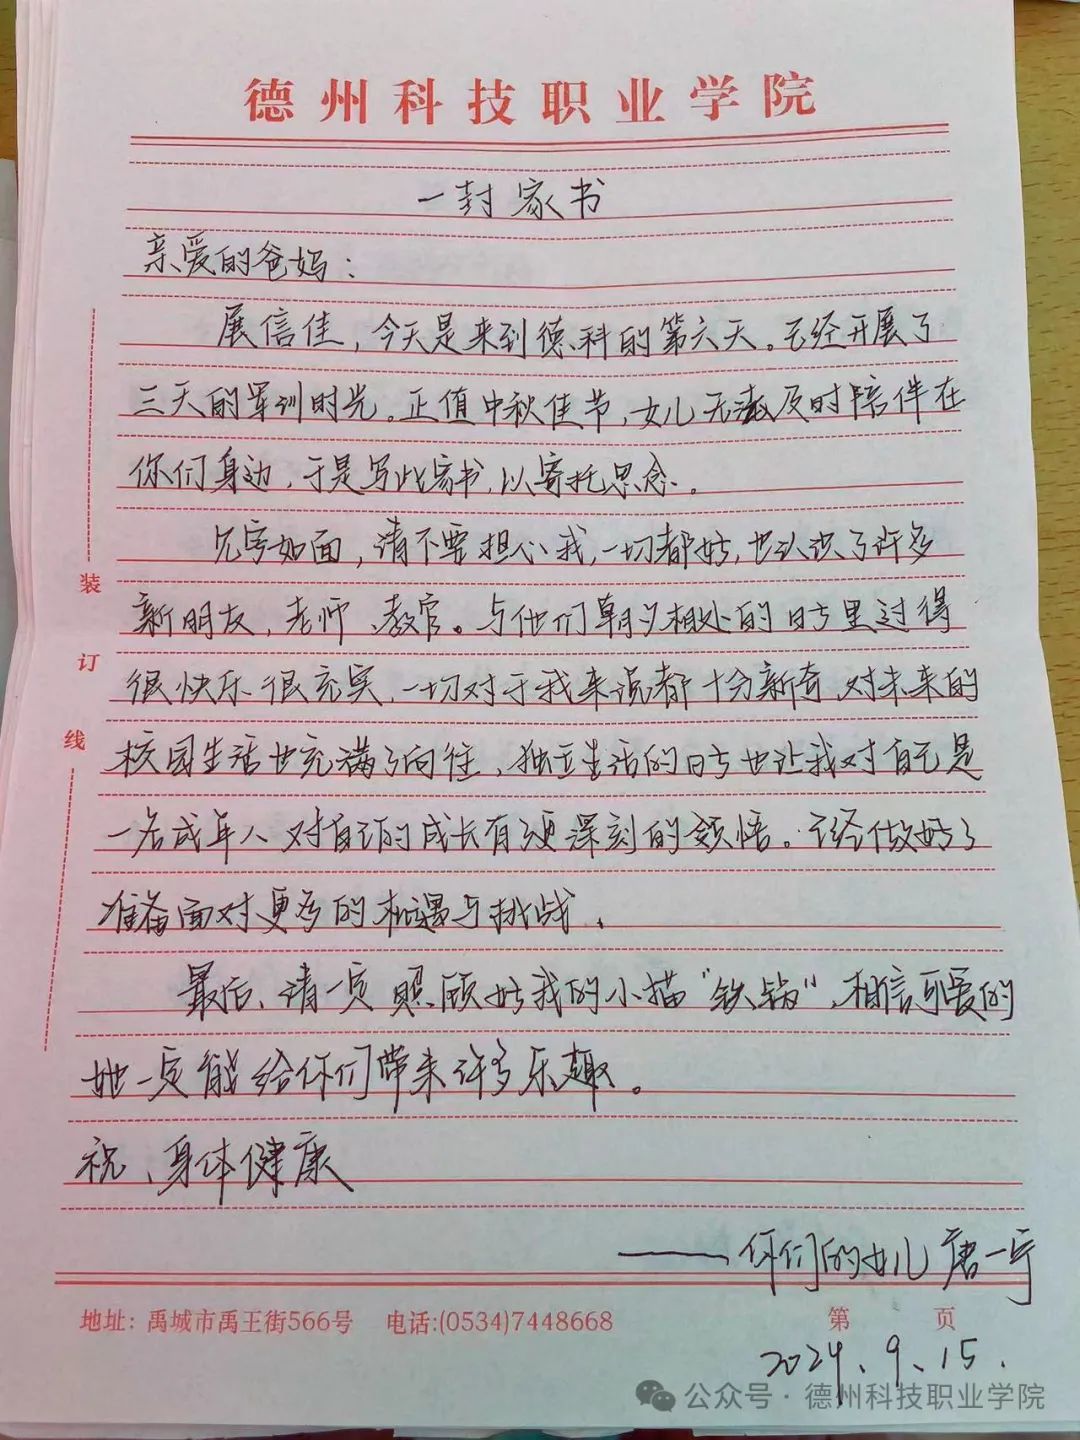 德州科技职业学院
一封家书
亲爱的爸妈：
展信佳，今天是来到德科的第六天。已经开展了
三天的军训时光。正值中秋佳节，女儿无法及时陪伴在
你们身边，于是写此家书，以寄托思念。
见字如面，请不要担心我，一切都好，也认识了许多
新朋友，老师、教官。与他们朝夕相处的日子里过得
很快乐很充实，一切对于我来说都十分新奇，对未来的
校园生活也充满了向往，独立生活的日子也让我对自己是
一名成年人对自己的成长有了更深刻的领悟。已经做好了
准备面对更多的机遇与挑战。
最后，请一定照顾好我的小猫“铁锅”，相信可爱的
她一定能给你们带来许多乐趣。
祝、身体健康
——你们的女儿 唐一宁
装
订
线
地址：禹城市禹王街566号 电话：(0534)7448668 第 页
2024.9.15.
公众号·德州科技职业学院